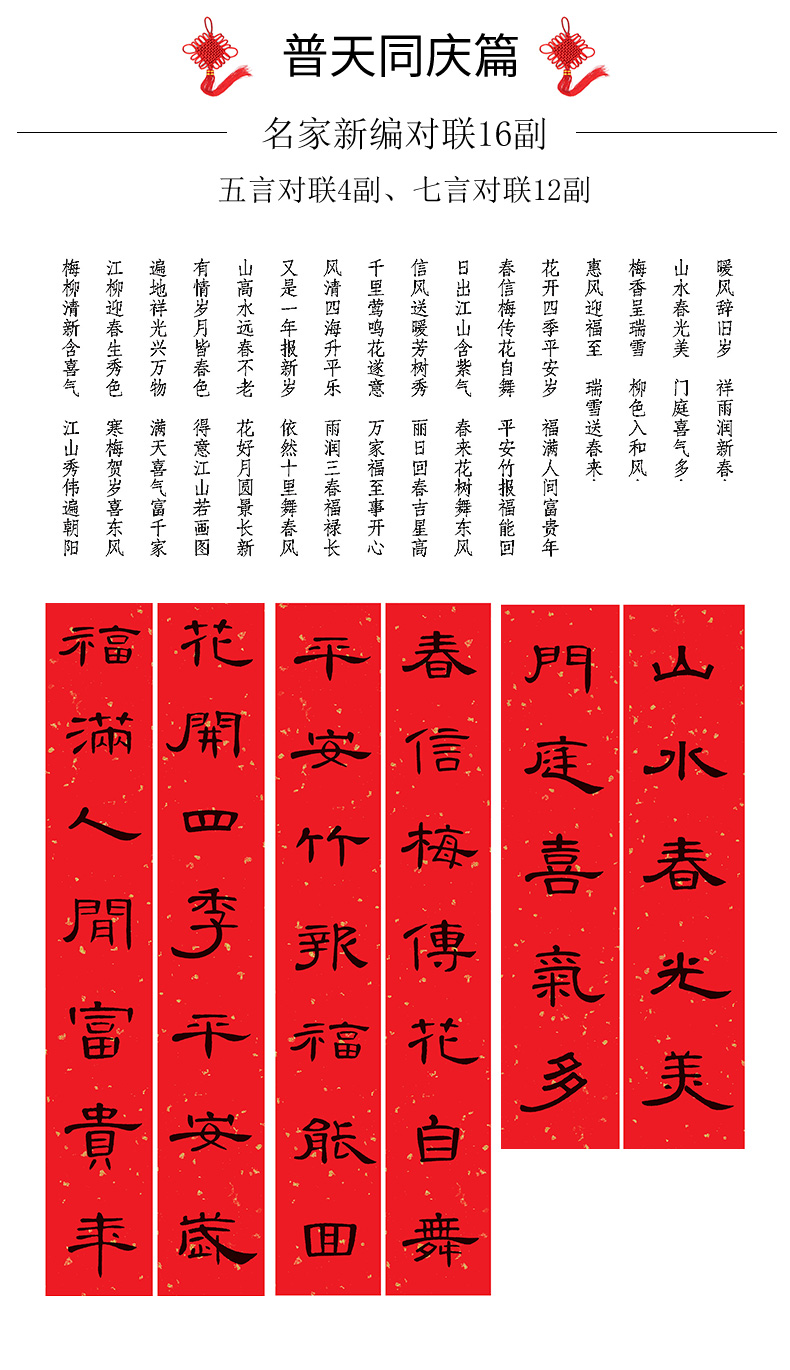 普天同庆篇
名家新编对联16副
五言对联4副、七言对联12副
暖风辞旧岁 祥雨润新春·
山水春光美 门庭喜气多·
梅香呈瑞雪 柳色入和风·
惠风迎福至 瑞雪送春来·
花开四季平安岁 福满人间富贵年
春信梅传花自舞 平安竹报福能回
日出江山含紫气 春来花树舞东风
信风送暖芳树秀 丽日回春吉星高
千里莺鸣花遂意 万家福至事开心
风清四海升平乐 雨润三春福禄长
又是一年报新岁 依然十里舞春风
山高水远春不老 花好月圆景长新
有情岁月皆春色 得意江山若画图
遍地祥光兴万物 满天喜气富千家
江柳迎春生秀色 寒梅贺岁喜东风
梅柳清新含喜气 江山秀伟遍朝阳
山水春光美
門庭喜氣多
春信梅傳花自舞
平安竹報福能回
花開四季平安歲
福滿人間富貴年